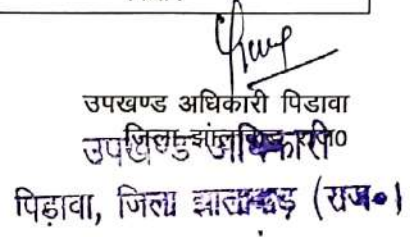 उपखण्ड अधिकारी पिडावा
जिला झालावाड राज0
उपखण्ड अधिकारी
पिड़ावा, जिला झालावाड़ (राज०)